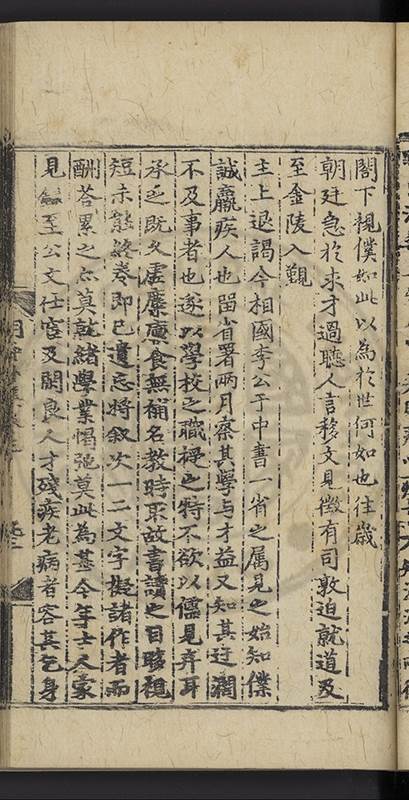 閣下視僕如此以為於世何如也往歲
朝廷急於求才過聽人言移文見徵有司敦迫就道及
至金陵入覲
主上退謁今相國李公于中書一省之属見之始知僕
誠羸疾人也留省署兩月察其學与才益又知其迂濶
不及事者也遂以學校之職禄之特不欲以儒見弃耳
承乏既久虚縻廪食無補名教時取故書讀之目眵視
短未能終卷即已遺忘将叙次一二文字擬諸作者而
酬荅累之亦莫就緒學業惰弛莫此為甚今年士大夫豪
見至公文仕宦及閑良人才殘疾老病者容其乞身